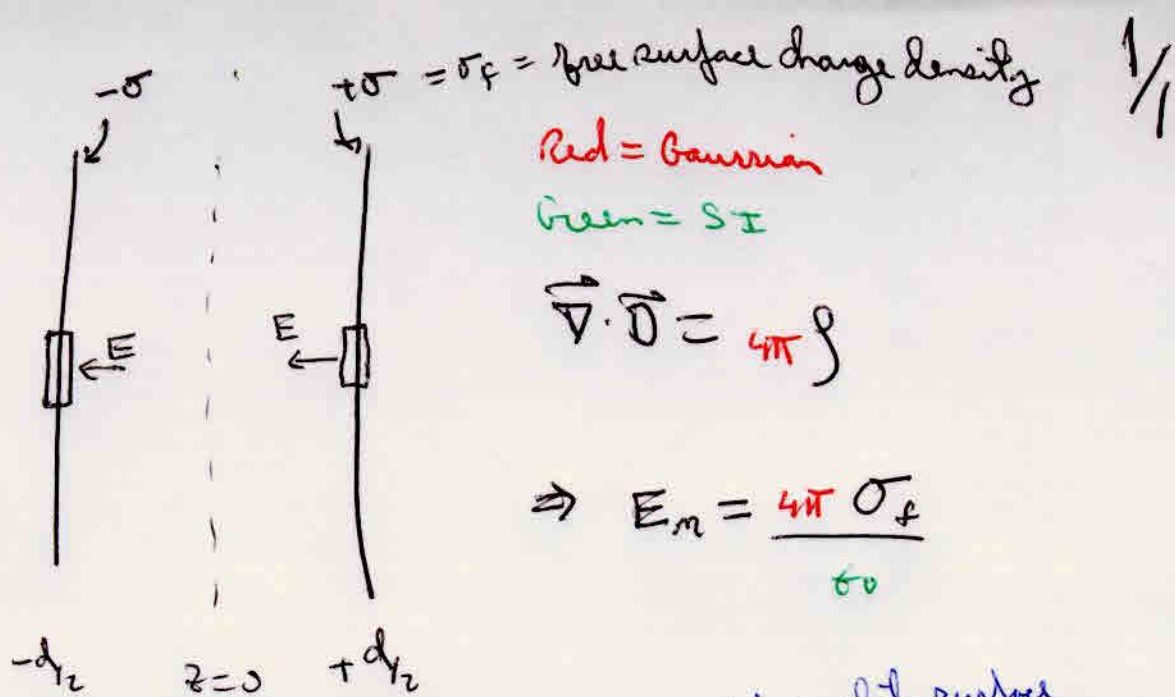 -σ
+σ = σf = free surface charge density 1/1
Red = Gaussian
Green = SI
∇⃗·D⃗ = 4π ρ
E
E
⇒ En = 4π σf / ε0
-d/2 z=0 + d/2
surface